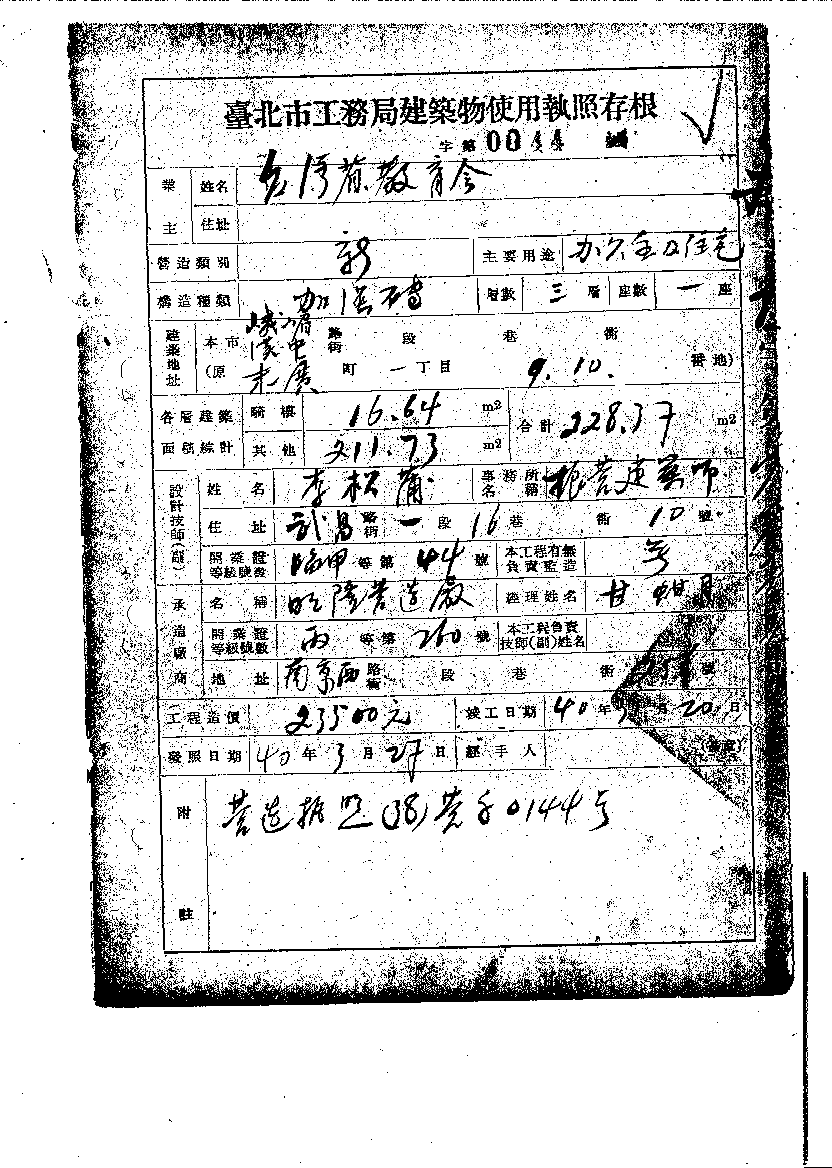 臺北市工務局建築物使用執照存根
字第 0044 號
業主 姓名 台灣省教育會
住址
營造類別 新 主要用途 辦公室及住宅
構造種類 加強磚 層數 三層 座數 一座
建築地址 本市 峨嵋 漢中 路街 段 巷 衖
(原 末廣町 一丁目 9.10. 番地)
各層建築面積總計 騎樓 16.64 m2 合計 228.37 m2
其他 211.73 m2
設計技師(副) 姓名 李松蒲 事務所名稱 建築師
住址 武昌路街 一段 16巷 衖 10號
開業證等級號數 臨甲等第 44 號 本工程有無負責監造
承造廠商 名稱 隆營造廠 經理姓名 甘
開業證等級號數 丙等第 260 號 本工程負責技師(副)姓名
地址 南京西路街 段 巷 衖 號
工程造價 23500元 竣工日期 40年 月20日
發照日期 40年3月27日 經手人 (蓋章)
附註 營造執照(38)營字0144号